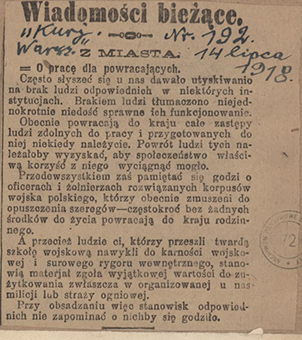 Wiadomości bieżące.
"Kurj. Warsz." Nr. 192.
14 lipca
1918.
Z MIASTA.
= O pracę dla powracających.
Często słyszeć się u nas dawało utyskiwanie
na brak ludzi odpowiednich w niektórych in-
stytucjach. Brakiem ludzi tłumaczono niejed-
nokrotnie niedość sprawne ich funkcjonowanie.
Obecnie powracają do kraju całe zastępy
ludzi zdolnych do pracy i przygotowanych do
niej niekiedy należycie. Powrót ludzi tych na-
leżałoby wyzyskać, aby społeczeństwo właści-
wą korzyść z niego wyciągnąć mogło.
Przedewszystkiem zaś pamiętać się godzi o
oficerach i żołnierzach rozwiązanych korpusów
wojska polskiego, którzy obecnie zmuszeni do
opuszczenia szeregów—częstokroć bez żadnych
środków do życia powracają do kraju rodzin-
nego.
A przecież ludzie ci, którzy przeszli twardą
szkołę wojskową nawykli do karności wojskowej
i surowego rygoru wewnętrznego, stano-
wią materjał zgoła wyjątkowej wartości do zu-
żytkowania zwłaszcza w organizowanej u nas
milicji lub straży ogniowej.
Przy obsadzaniu więc stanowisk odpowied-
nich nie zapominać o nichby się godziło.